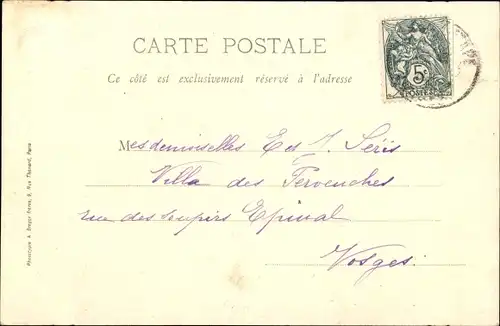 CARTE POSTALE
Ce côté est exclusivement réservé à l'adresse
5c
POSTES
Mesdemoiselles E et J. Séris
Villa des Pervenches
rue des soupirs Epinal
Vosges